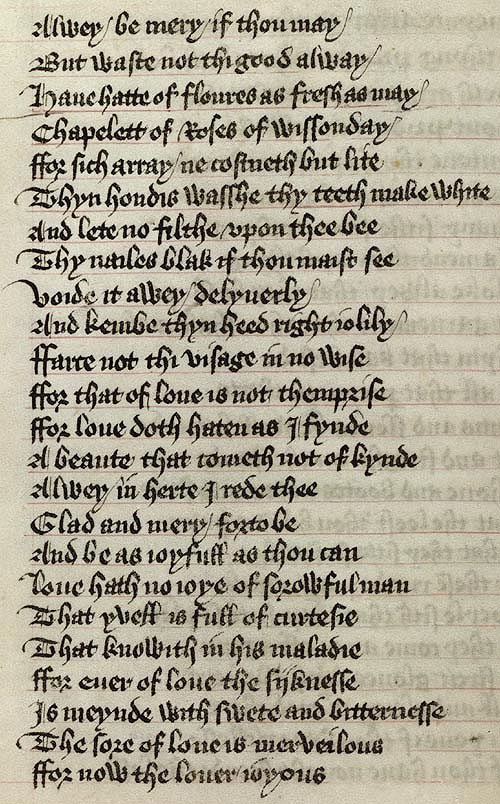 Alwey / be mery / if thou may /
But waste not thi good alway /
Haue hatte of floures as fresh as may /
Chapelett of Roses of wissonday /
ffor sich array / ne costneth but lite
Thyn hondis wasshe thy teeth make white
And lete no filthe / vpon thee bee
Thy nailes blak if thou maist see
Voide it awey / delyuerly /
And kembe thyn heed right iolily /
ffarce not thi visage in no wise
ffor that of loue is not themprise
ffor loue doth haten as I fynde
A beaute that cometh not of kynde
Alwey / in herte I rede thee
Glad and mery / forto be
And be as ioyfull as thou can
Loue hath no ioye of sorowful man
That yvell is full of curtesie
That knowith in his maladie
ffor euer of loue the sijknesse
Is meynde with swete and bitternesse
The sore of loue is merveilous
ffor now the louer / ioyous